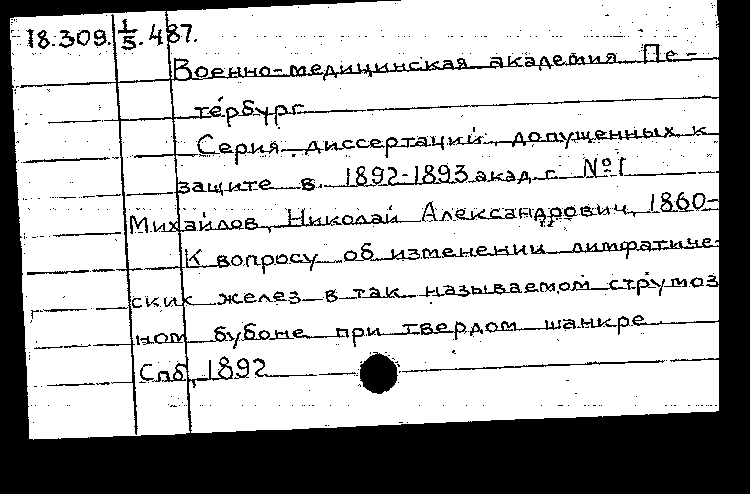 18.309.1/5.487.
Военно-медицинская академия Пе-
тербург
Серия диссертаций, допущенных к
защите в 1892-1893 акад. г. №1
Михайлов, Николай Александрович, 1860-
К вопросу об изменении лимфатиче-
ских желез в так называемом струмоз
ном бубоне при твердом шанкре
Спб, 1892